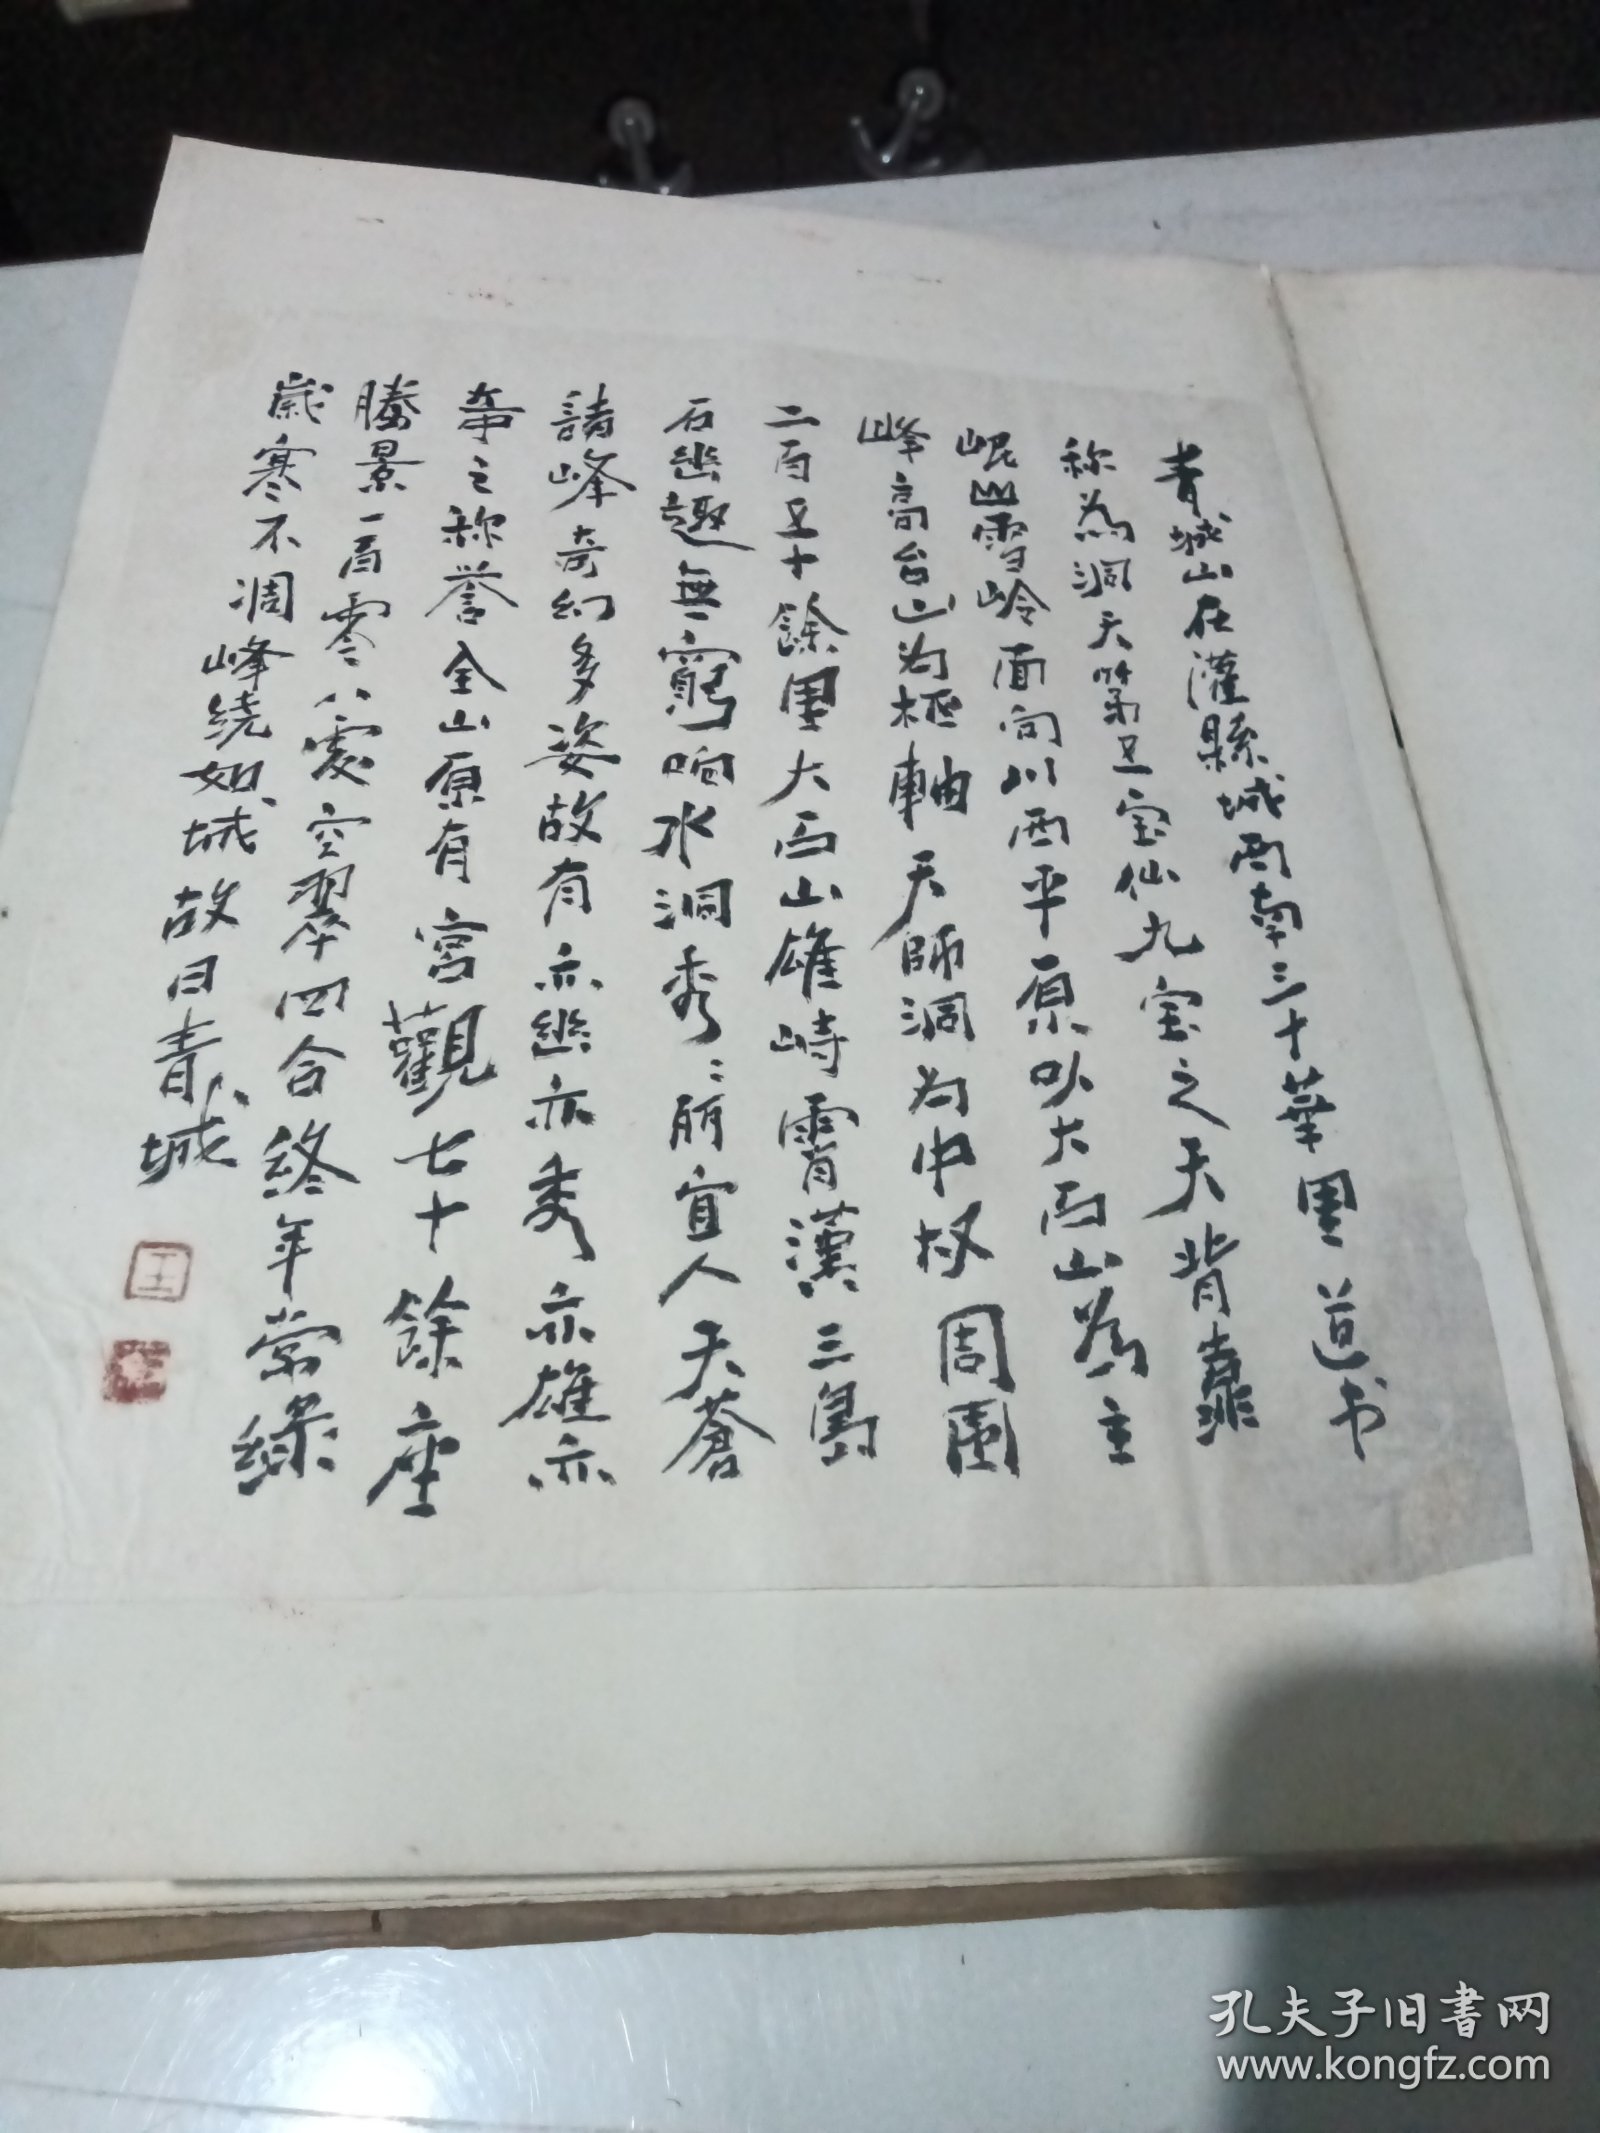 青城山在灌縣城西南三十華里道书
称為洞天第五宝仙九室之天背靠
崐山雪岭面向川西平原以大面山為主
峰高台山为極軸天師洞为中极周圍
二百五十餘里大面山雄峙霄漢三島
石幽趣無窮响水洞秀亍宜人天蒼
諸峰奇幻多姿故有亦幽亦秀亦雄亦
奇之称誉全山原有宮觀七十餘座
勝景一百零八處空翠四合終年常綠
歲寒不凋峰绕如城故曰青城
王
孔夫子旧書网
www.kongfz.com